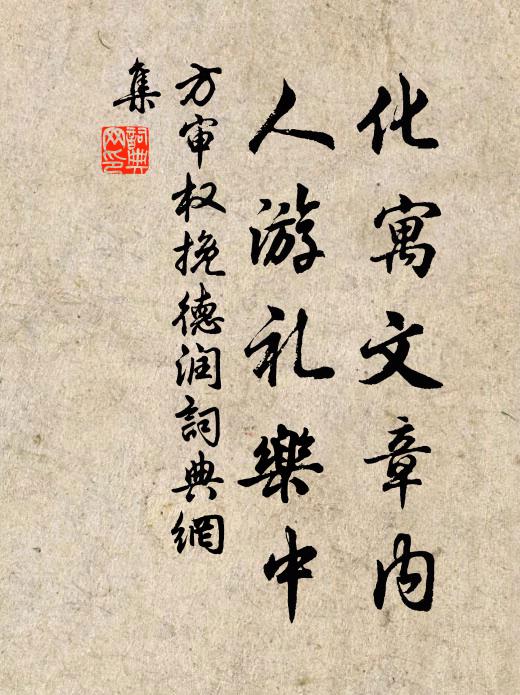 化寓文章内
人游礼樂中
方审权挽德润詞典網
集
詞典網印